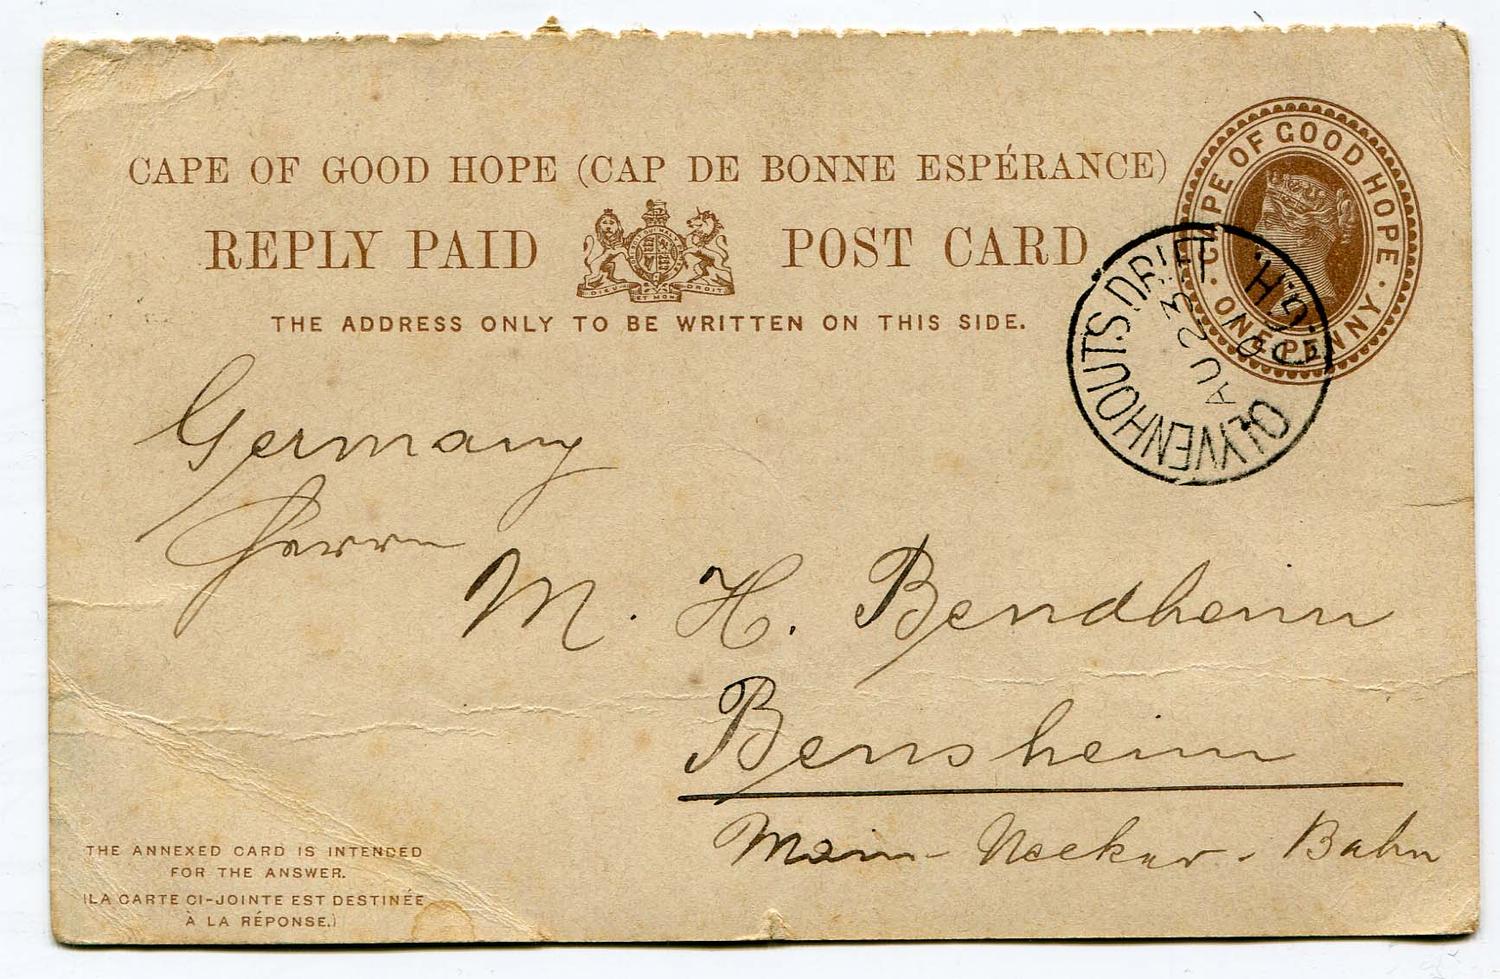 CAPE OF GOOD HOPE (CAP DE BONNE ESPÉRANCE)
REPLY PAID POST CARD
DIEU ET MON DROIT
THE ADDRESS ONLY TO BE WRITTEN ON THIS SIDE.
CAPE OF GOOD HOPE
ONE PENNY
OLYVENHOUTS DRIFT
C.G.H.
AU 23
00
Germany
Herrn
M. H. Bendheim
Bensheim
Main-Neckar-Bahn
THE ANNEXED CARD IS INTENDED
FOR THE ANSWER.
(LA CARTE CI-JOINTE EST DESTINÉE
À LA RÉPONSE.)